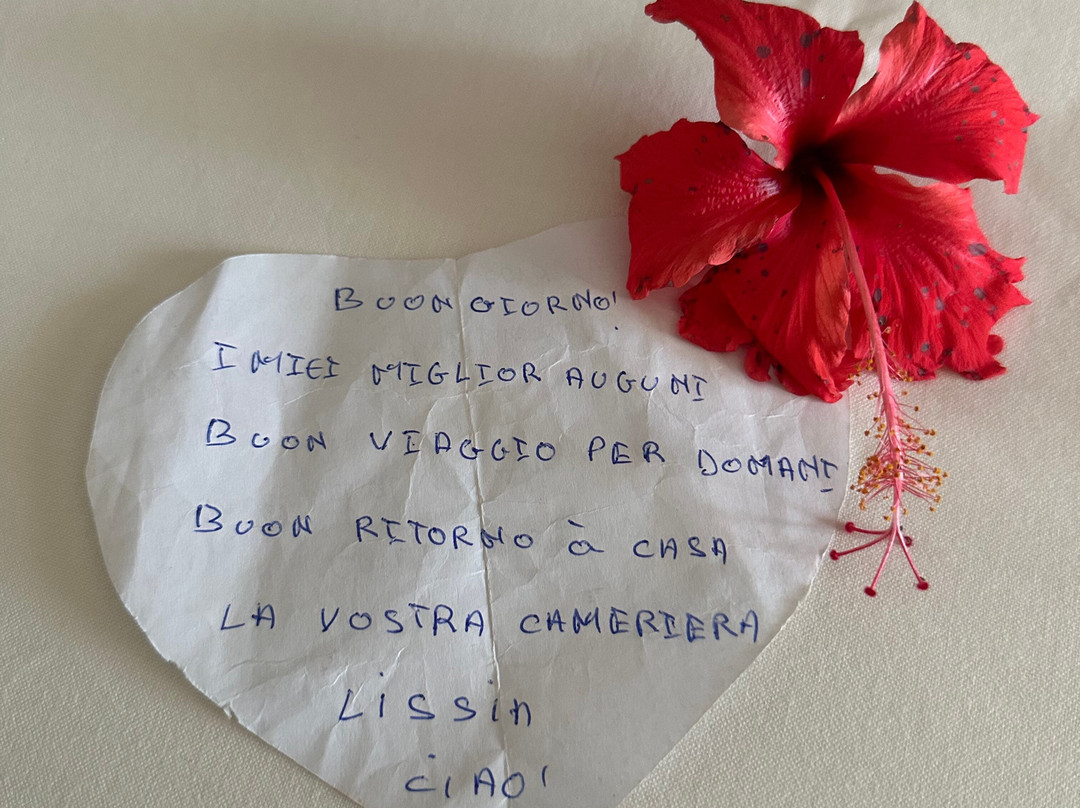 BUON GIORNO!
I MIEI MIGLIOR AUGUNI
BUON VIAGGIO PER DOMANI
BUON RITORNO à CASA
LA VOSTRA CAMERIERA
Lissin
CIAO!